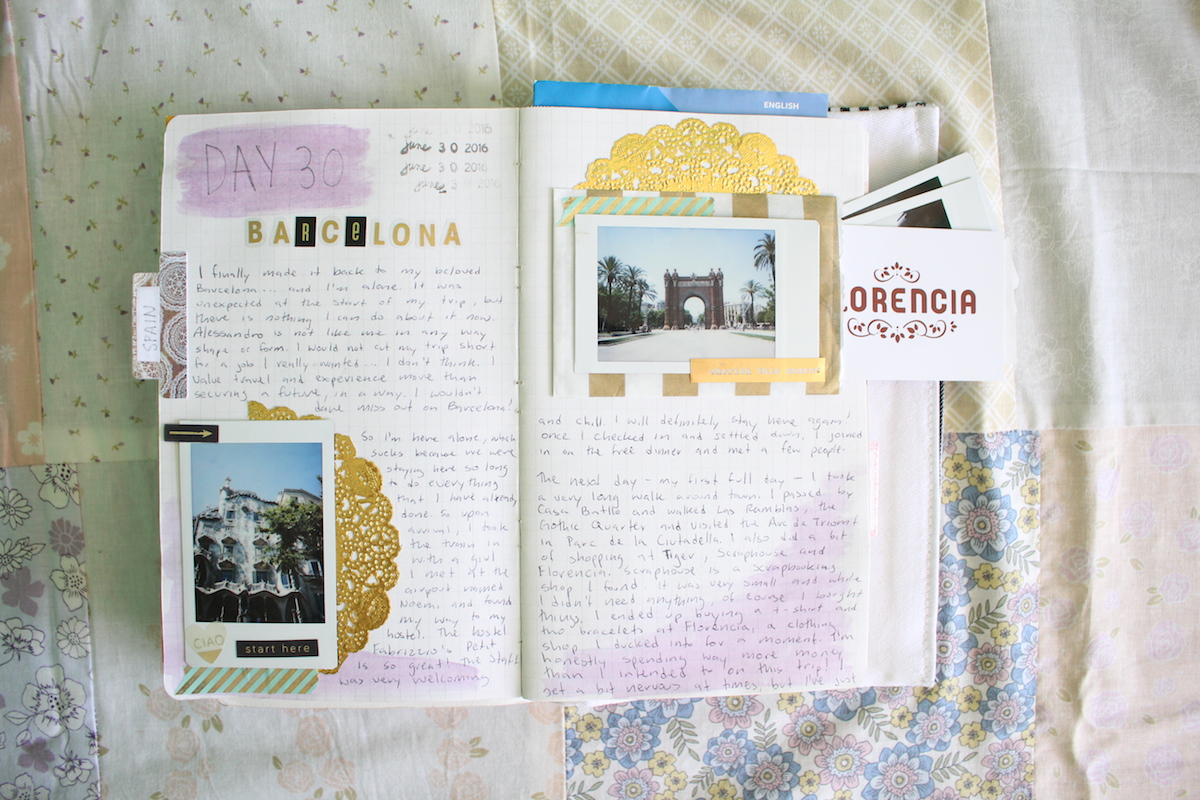 ENGLISH
DAY 30
june 30 2016
june 30 2016
june 30 2016
june 3 2016
BARCELONA
SPAIN
I finally made it back to my beloved
Barcelona... and I'm alone. It was
unexpected at the start of my trip, but
there is nothing I can do about it now.
Alessandro is not like me in any way
shape or form. I would not cut my trip short
for a job I really wanted... I don't think. I
value travel and experience more than
securing a future, in a way. I wouldn't
dare miss out on Barcelona!
So I'm here alone, which
sucks because we were
staying here so long
to do everything
that I have already
done. So upon
arrival, I took
the train in
with a girl
I met at the
airport named
Noemi and found
my way to my
hostel. The hostel
Fabrizzio's Petit
is so great! The staff
was very welcoming
CIAO
start here
and chill. I will definitely stay here again!
once I checked in and settled down, I joined
in on the free dinner and met a few people.
The next day - my first full day - I took
a very long walk around town. I passed by
Casa Batllo and walked Las Ramblas, the
Gothic Quarter and visited the Arc de Triomf
in Parc de la Ciutadella. I also did a bit
of shopping at Tiger, Scraphouse and
Florencia. Scraphouse is a scrapbooking
shop I found. It was very small and while
I didn't need anything, of course I bought
things. I ended up buying a t-shirt and
two bracelets at Florencia, a clothing
shop I ducked into for a moment. I'm
honestly spending way more money
than I intended to on this trip! I
get a bit nervous at times, but I've just
LORENCIA